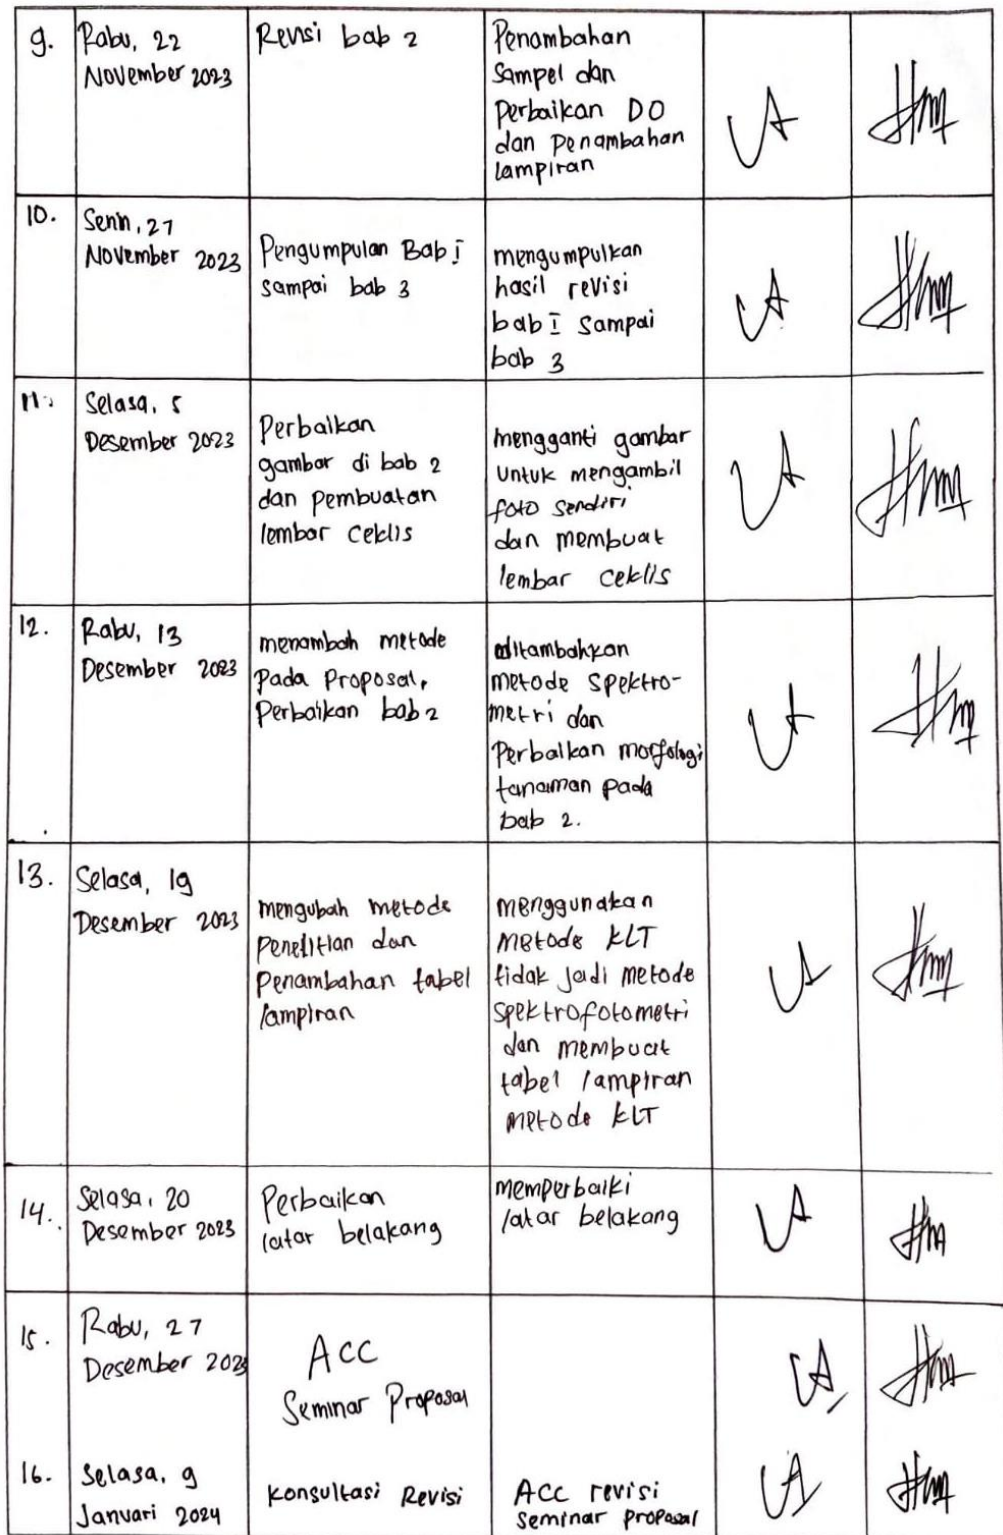 9.
Rabu, 22
November 2023
Revisi bab 2
Penambahan
Sampel dan
Perbaikan DO
dan Penambahan
lampiran
10.
Senin, 27
November 2023
Pengumpulan Bab I
sampai bab 3
mengumpulkan
hasil revisi
bab I sampai
bab 3
11.
Selasa, 5
Desember 2023
Perbaikan
gambar di bab 2
dan pembuatan
lembar ceklis
mengganti gambar
untuk mengambil
foto sendiri
dan membuat
lembar ceklis
12.
Rabu, 13
Desember 2023
menambah metode
Pada Proposal,
Perbaikan bab 2
ditambahkan
metode spektro-
metri dan
Perbaikan morfologi
tanaman pada
bab 2.
13.
Selasa, 19
Desember 2023
mengubah metode
Penelitian dan
Penambahan tabel
lampiran
menggunakan
metode KLT
tidak jadi metode
spektrofotometri
dan membuat
tabel lampiran
metode KLT
14.
Selasa, 20
Desember 2023
Perbaikan
latar belakang
memperbaiki
latar belakang
15.
Rabu, 27
Desember 2023
ACC
Seminar Proposal
16.
Selasa, 9
Januari 2024
Konsultasi Revisi
ACC revisi
seminar proposal